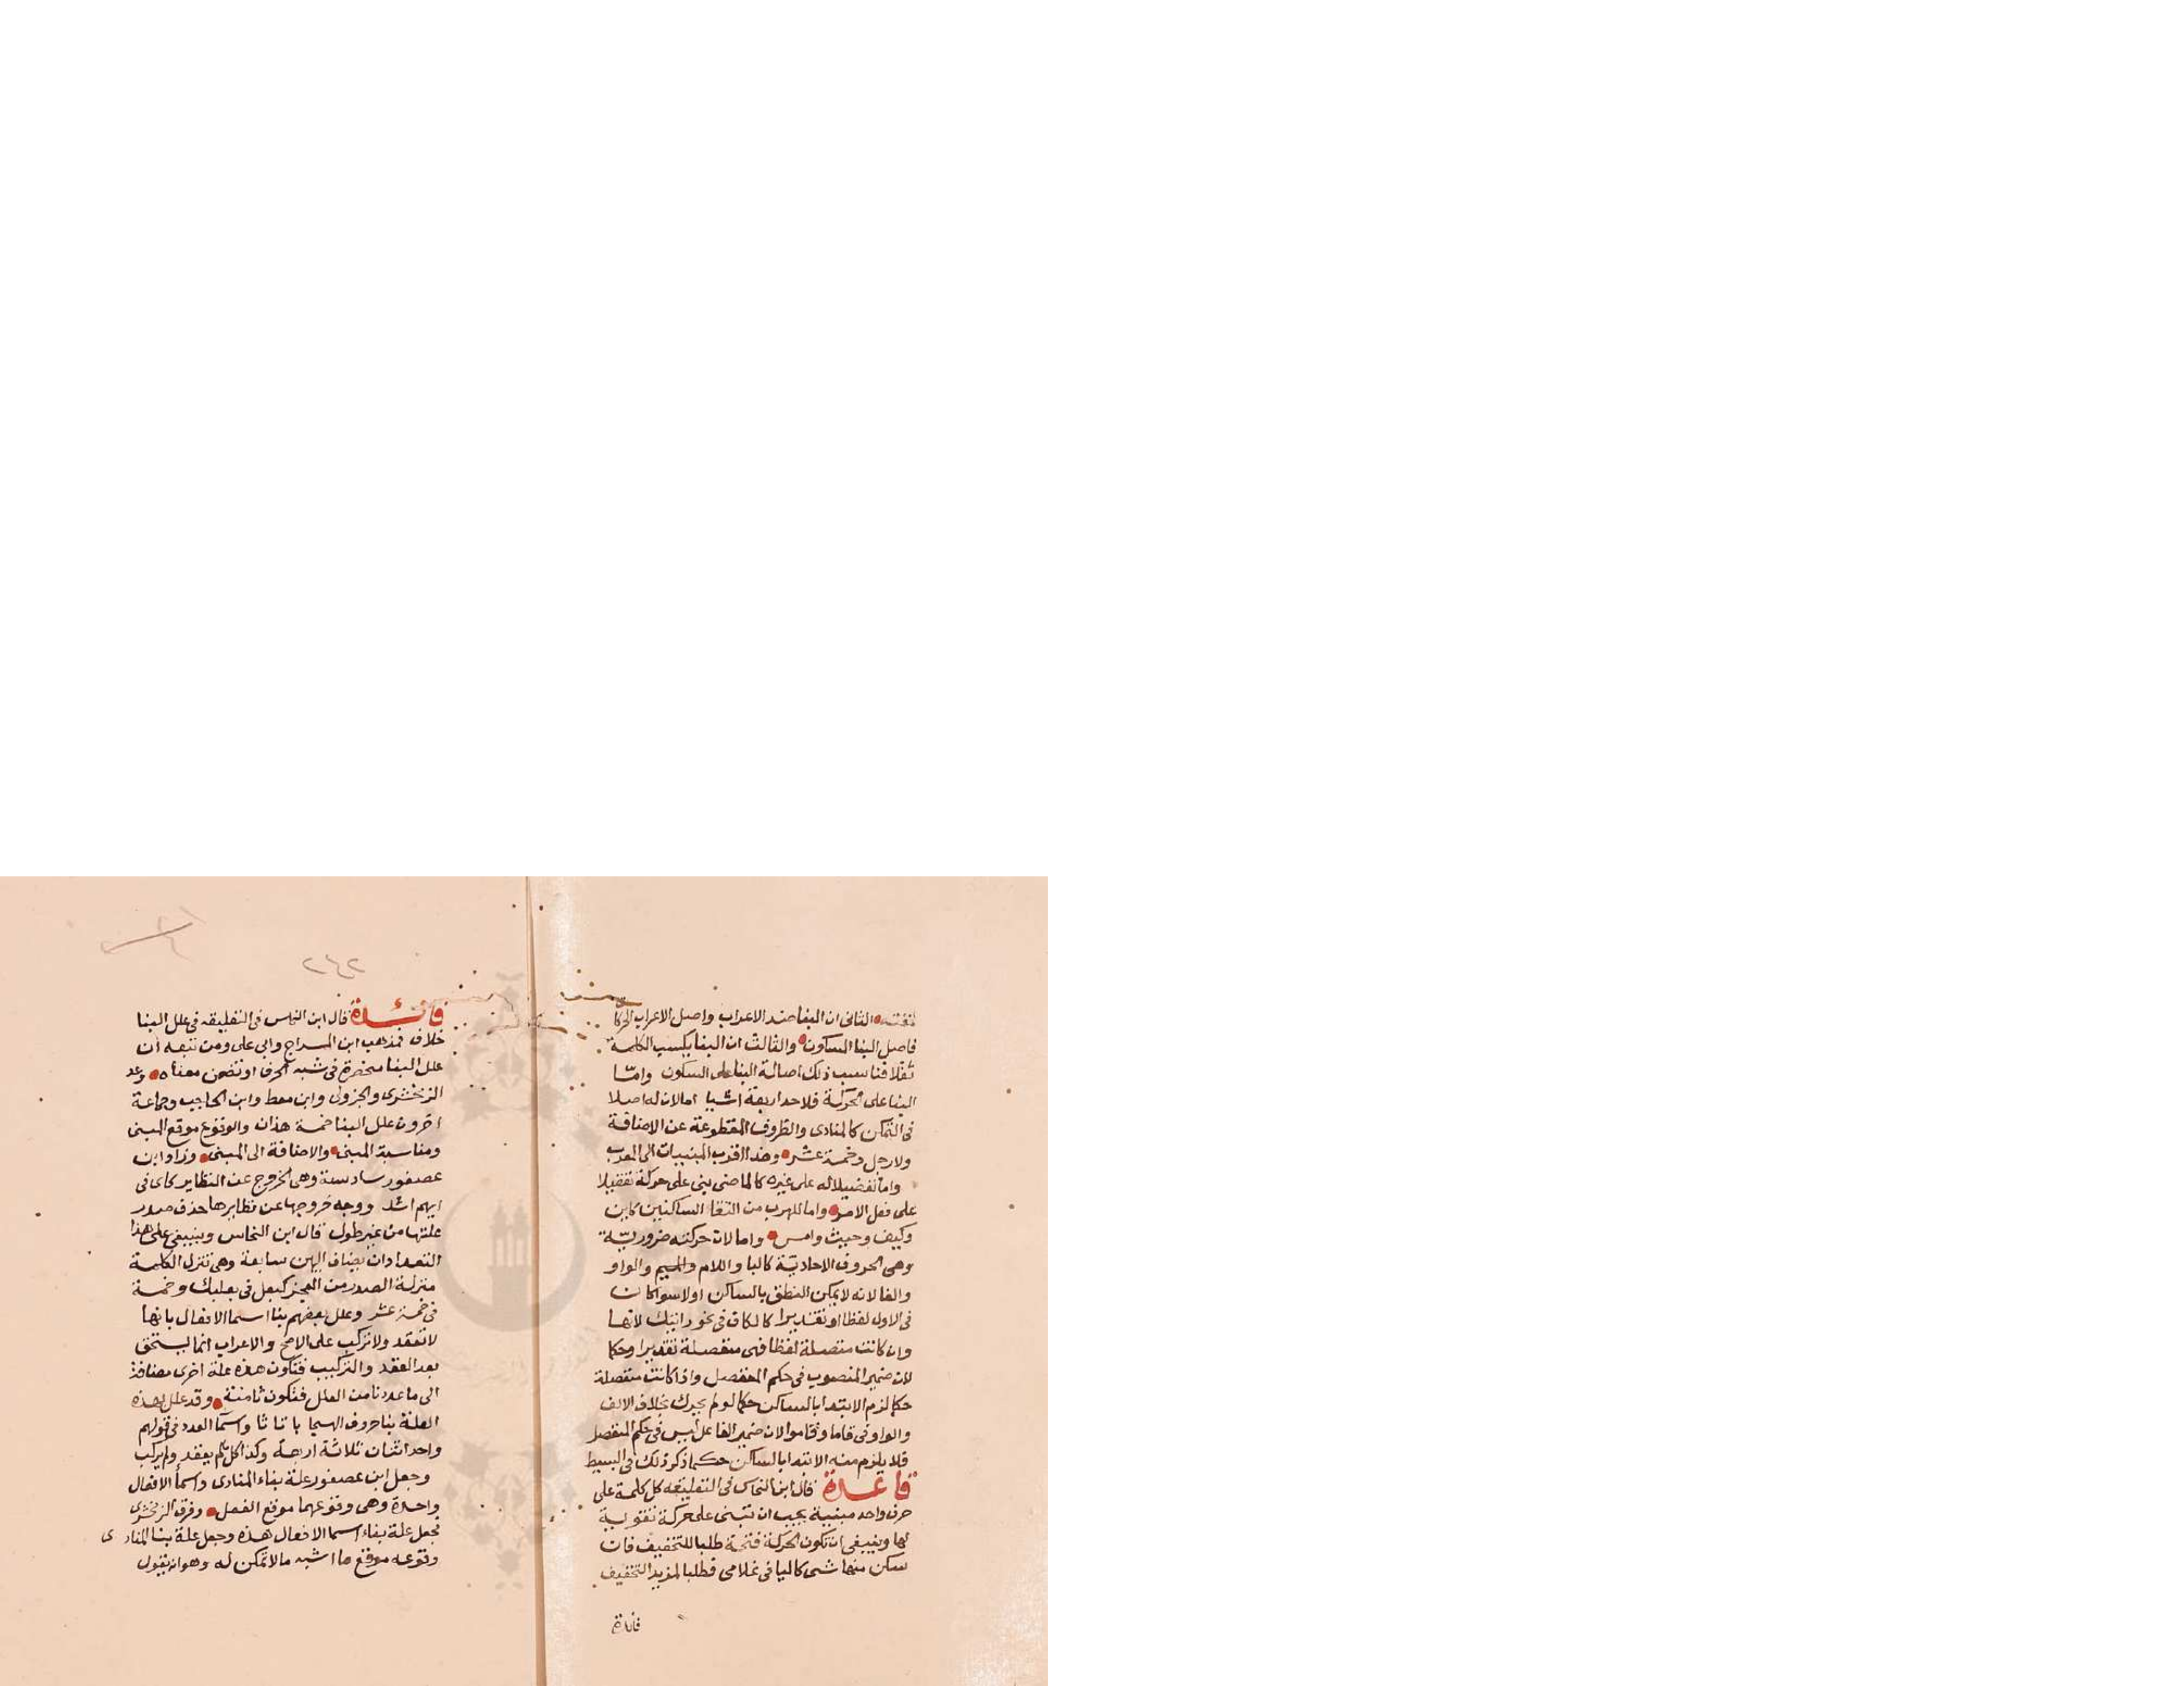 لخفته الثانى ان البنا ضد الاعراب واصل الاعراب الحركا
فاصل البنا السكون والثالث ان البنا يكسب الكلمة
ثقلا فناسب ذلك اصالة البنا على السكون وامّا
البنا على الحركة فلاحد اربعة اشيا اما لان له اصلا
فى التمكن كالمنادى والظروف المقطوعة عن الاضافة
ولا رجل وخمسة عشر وهذا اقرب المبنيات الى المعرب
واما تفضيلا له على غيره كالماضى بنى على حركة تفضيلا
على فعل الامر واما للهرب من التقا الساكنين كاين
وكيف وحيث وامس واما لان حركته ضروريّة
وهى الحروف الاحاديّة كالبا واللام والميم والواو
والفا لانه لا يمكن النطق بالساكن اولا سوا كان
فى الاول لفظا او تقديرا كالكاف فى نحو رايتك لانها
وان كانت متصلة لفظا فهى منفصلة تقديرا وحكما
لان ضمير المنصوب فى حكم المنفصل واذا كانت منفصلة
حكما لزم الابتدا بالساكن حكما لو لم يحرك بخلاف الالف
والواو فى قاما وقاموا لان ضمير الفاعل ليس فى حكم المنفصل
فلا يلزم منه الابتدا بالساكن حكما ذكر ذلك فى البسيط
قاعدة قال ابن النحاس فى التعليقه كل كلمة على
حرف واحد مبنية يجب ان تبنى على حركة تقوية
لها وينبغى ان تكون الحركة فتحة طلبا للتخفيف فان
سكن منها شى كاليا فى غلامى فطلبا لمزيد التخفيف
فائدة
٢٤٢
فائدة قال ابن النحاس فى التعليقه فى علل البنا
خلاف فمذهب ابن السراج وابى على ومن تبعه ان
علل البنا منحصرة فى شبه الحرف او تضمن معناه وعد
الزمخشرى والجزولى وابن معط وابن الحاجب وجماعة
اخرون علل البنا خمسة هذان والوقوع موقع المبنى
ومناسبة المبنى والاضافة الى المبنى وزاد ابن
عصفور سادسة وهى الخروج عن النظاير كاى فى
ايهم اشد ووجه خروجها عن نظايرها حذف صدر
صلتها من غير طول قال ابن النحاس وينبغى على هذا
التعداد ان يضاف اليهن سابعة وهى تنزل الكلمة
منزلة الصدر من العجز كبعل فى بعلبك وخمسة
فى خمسة عشر وعلل بعضهم بنا اسما الافعال بانها
لا تعقد ولا تركب على الاصح والاعراب انما يستحق
بعد العقد والتركيب فتكون هذه علة اخرى مضافة
الى ما عددنا من العلل فتكون ثامنة وقد علل بهذه
العلة بنا حروف الهجا با تا ثا واسمآ العدد فى قولهم
واحد اثنان ثلاثة اربعة وكذا كل ما لم يعقد ولم يركب
وجعل ابن عصفور علة بناء المنادى واسمآ الافعال
واحدة وهى وقوعهما موقع الفعل وفرق الزمخشرى
فجعل علة بناء اسما الافعال هذه وجعل علة بنا المنادى
وقوعه موقع ما اشبه ما لا تمكن له وهو انه يقول